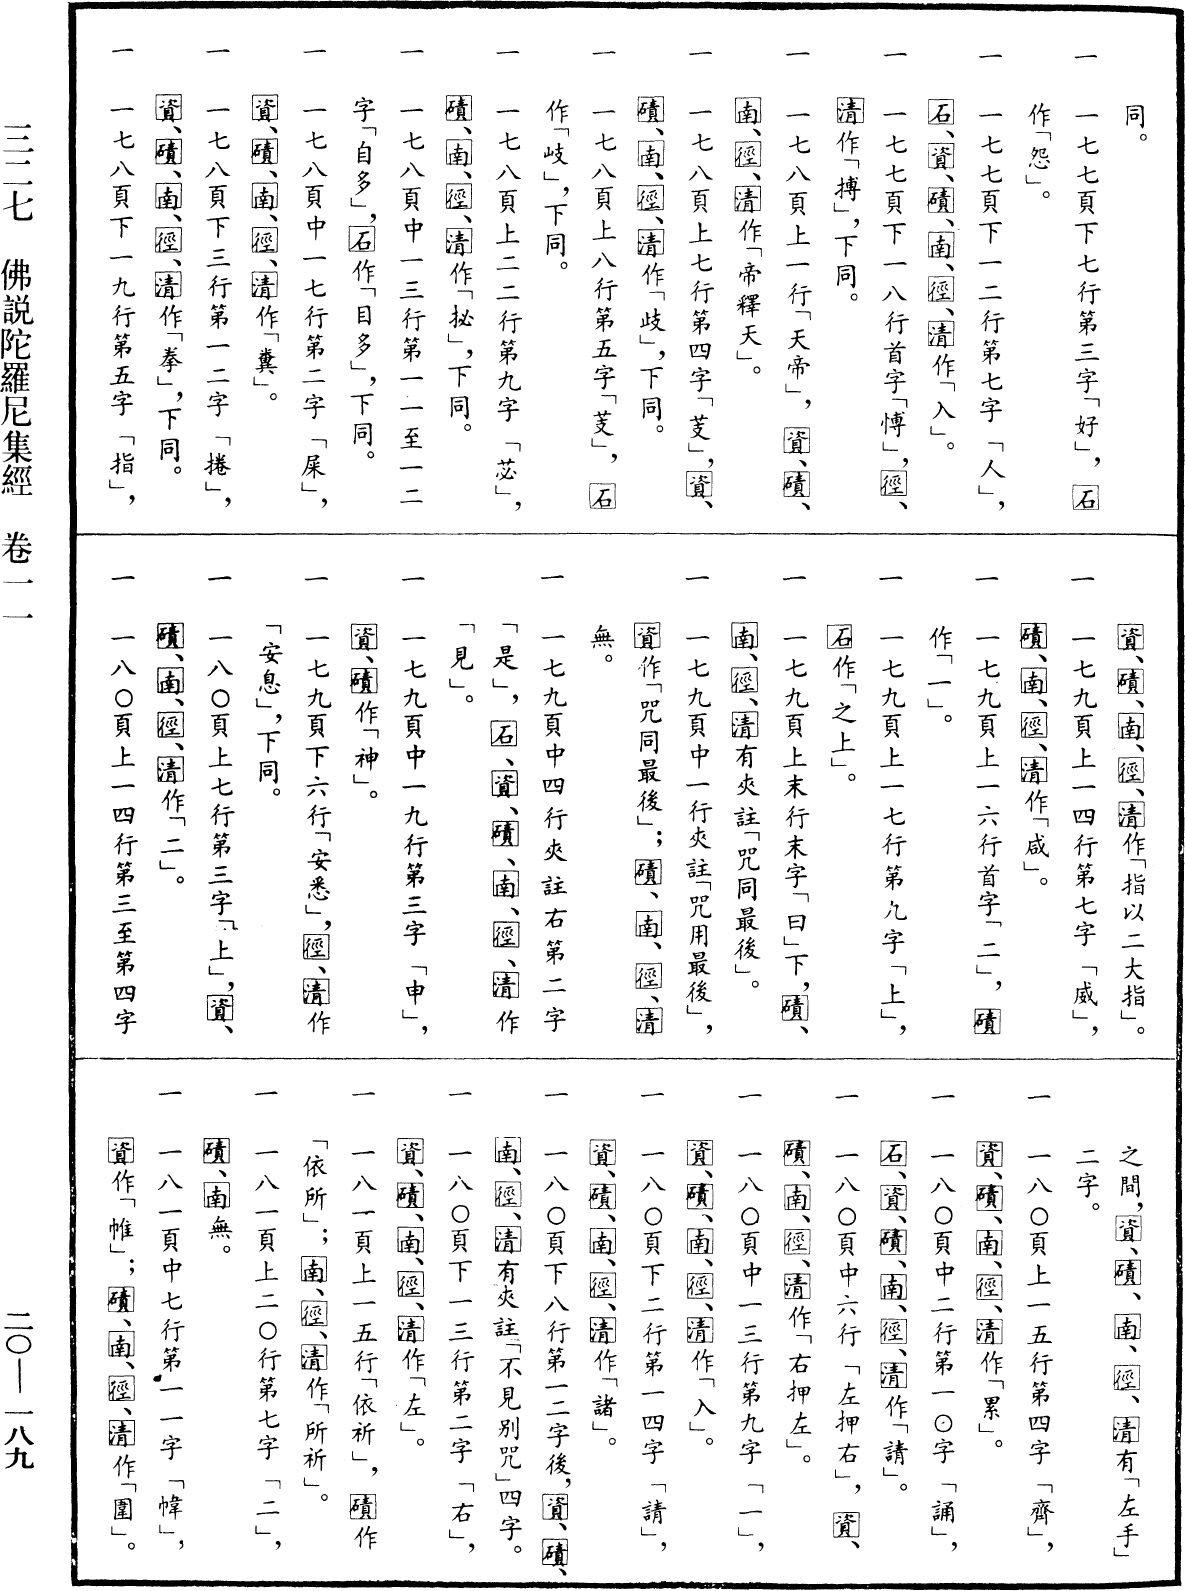 同。
一　一七七頁下七行第三字「好」，石
作「怨」。
一　一七七頁下一二行第七字「人」，
石、資、磧、南、徑、清作「入」。
一　一七七頁下一八行首字「愽」，徑、
清作「搏」，下同。
一　一七八頁上一行「天帝」，資、磧、
南、徑、清作「帝釋天」。
一　一七八頁上七行第四字「芰」，資、
磧、南、徑、清作「歧」，下同。
一　一七八頁上八行第五字「芰」，石
作「岐」，下同。
一　一七八頁上二二行第九字「苾」，
磧、南、徑、清作「毖」，下同。
一　一七八頁中一三行第一一至一二
字「自多」，石作「目多」，下同。
一　一七八頁中一七行第二字「屎」，
資、磧、南、徑、清作「糞」。
一　一七八頁下三行第一二字「捲」，
資、磧、南、徑、清作「拳」，下同。
一　一七八頁下一九行第五字「指」，
資、磧、南、徑、清作「指以二大指」。
一　一七九頁上一四行第七字「威」，
磧、南、徑、清作「咸」。
一　一七九頁上一六行首字「二」，磧
作「一」。
一　一七九頁上一七行第九字「上」，
石作「之上」。
一　一七九頁上末行末字「曰」下，磧、
南、徑、清有夾註「咒同最後」。
一　一七九頁中一行夾註「咒用最後」，
資作「咒同最後」；磧、南、徑、清
無。
一　一七九頁中四行夾註右第二字
「是」，石、資、磧、南、徑、清作
「見」。
一　一七九頁中一九行第三字「申」，
資、磧作「神」。
一　一七九頁下六行「安悉」，徑、清作
「安息」，下同。
一　一八〇頁上七行第三字「上」，資、
磧、南、徑、清作「二」。
一　一八〇頁上一四行第三至第四字
之間，資、磧、南、徑、清有「左手」
二字。
一　一八〇頁上一五行第四字「齊」，
資、磧、南、徑、清作「累」。
一　一八〇頁中二行第一〇字「誦」，
石、資、磧、南、徑、清作「請」。
一　一八〇頁中六行「左押右」，資、
磧、南、徑、清作「右押左」。
一　一八〇頁中一三行第九字「一」，
資、磧、南、徑、清作「入」。
一　一八〇頁下二行第一四字「請」，
資、磧、南、徑、清作「諸」。
一　一八〇頁下八行第一二字後，資、磧、
南、徑、清有夾註「不見別咒」四字。
一　一八〇頁下一三行第二字「右」，
資、磧、南、徑、清作「左」。
一　一八一頁上一五行「依祈」，磧作
「依所」；南、徑、清作「所祈」。
一　一八一頁上二〇行第七字「二」，
磧、南無。
一　一八一頁中七行第一一字「幃」，
資作「帷」；磧、南、徑、清作「圍」。
三二七　佛説陀羅尼集經　卷一一
二〇—一八九